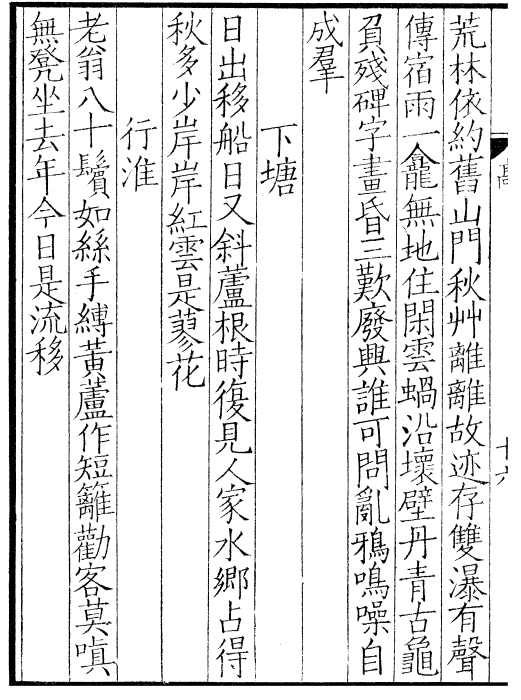 荒林依約舊山門秋艸離離故迹存雙瀑有聲
傳宿雨一龕無地住閑雲蝸沿壞壁丹青古龜
負殘碑字畫昏三歎廢興誰可問亂鴉鳴噪自
成羣
下塘
日出移船日又斜蘆根時復見人家水鄉占得
秋多少岸岸紅雲是蓼花
行淮
老翁八十鬢如絲手縛黃蘆作短籬勸客莫嗔
無凳坐去年今日是流移